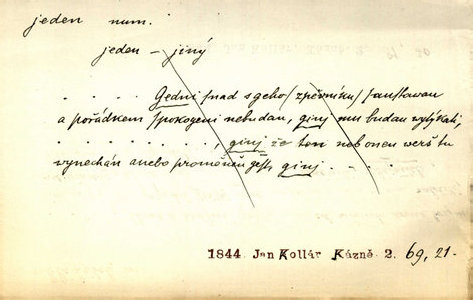 jeden num.
jeden – jiný
. . . . . Gedni snad s geho /zpěvníku/ saustavau
a pořádkem /spokogeni nebudau, giný mu budau wytýkati,
. . . . . . . . . , giný že ten neb onen werš tu
vynechán anebo proměněn gest, giný . . . .
1844 Jan Kollár Kázně 2. 69, 21.